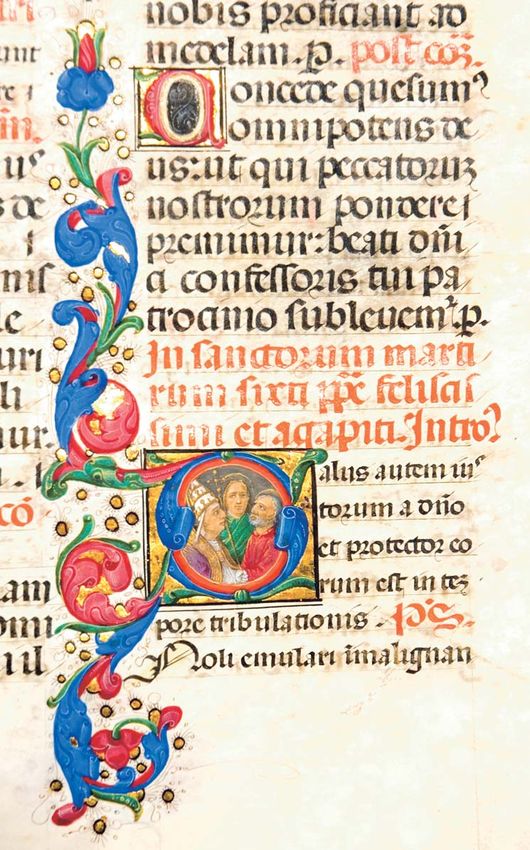 nobis proficiant ad
medelam. p. post cōꝫ.
Concede quesumꝰ
omnipotens de
us: ut qui peccatoruꝫ
nostrorum pondere
premimur: beati dn̄i
ci confessoris tui pa
trocinio subleuem̄. p.
In sanctorum marti
rum sixti pp̄e felicis
simi et agapiti. Introꝰ
Salus autem iusꝰ
torum a dn̄o
et protector eo
rum est in teꝫ
pore tribulationis. pˢ.
Noli emulari ī malignan